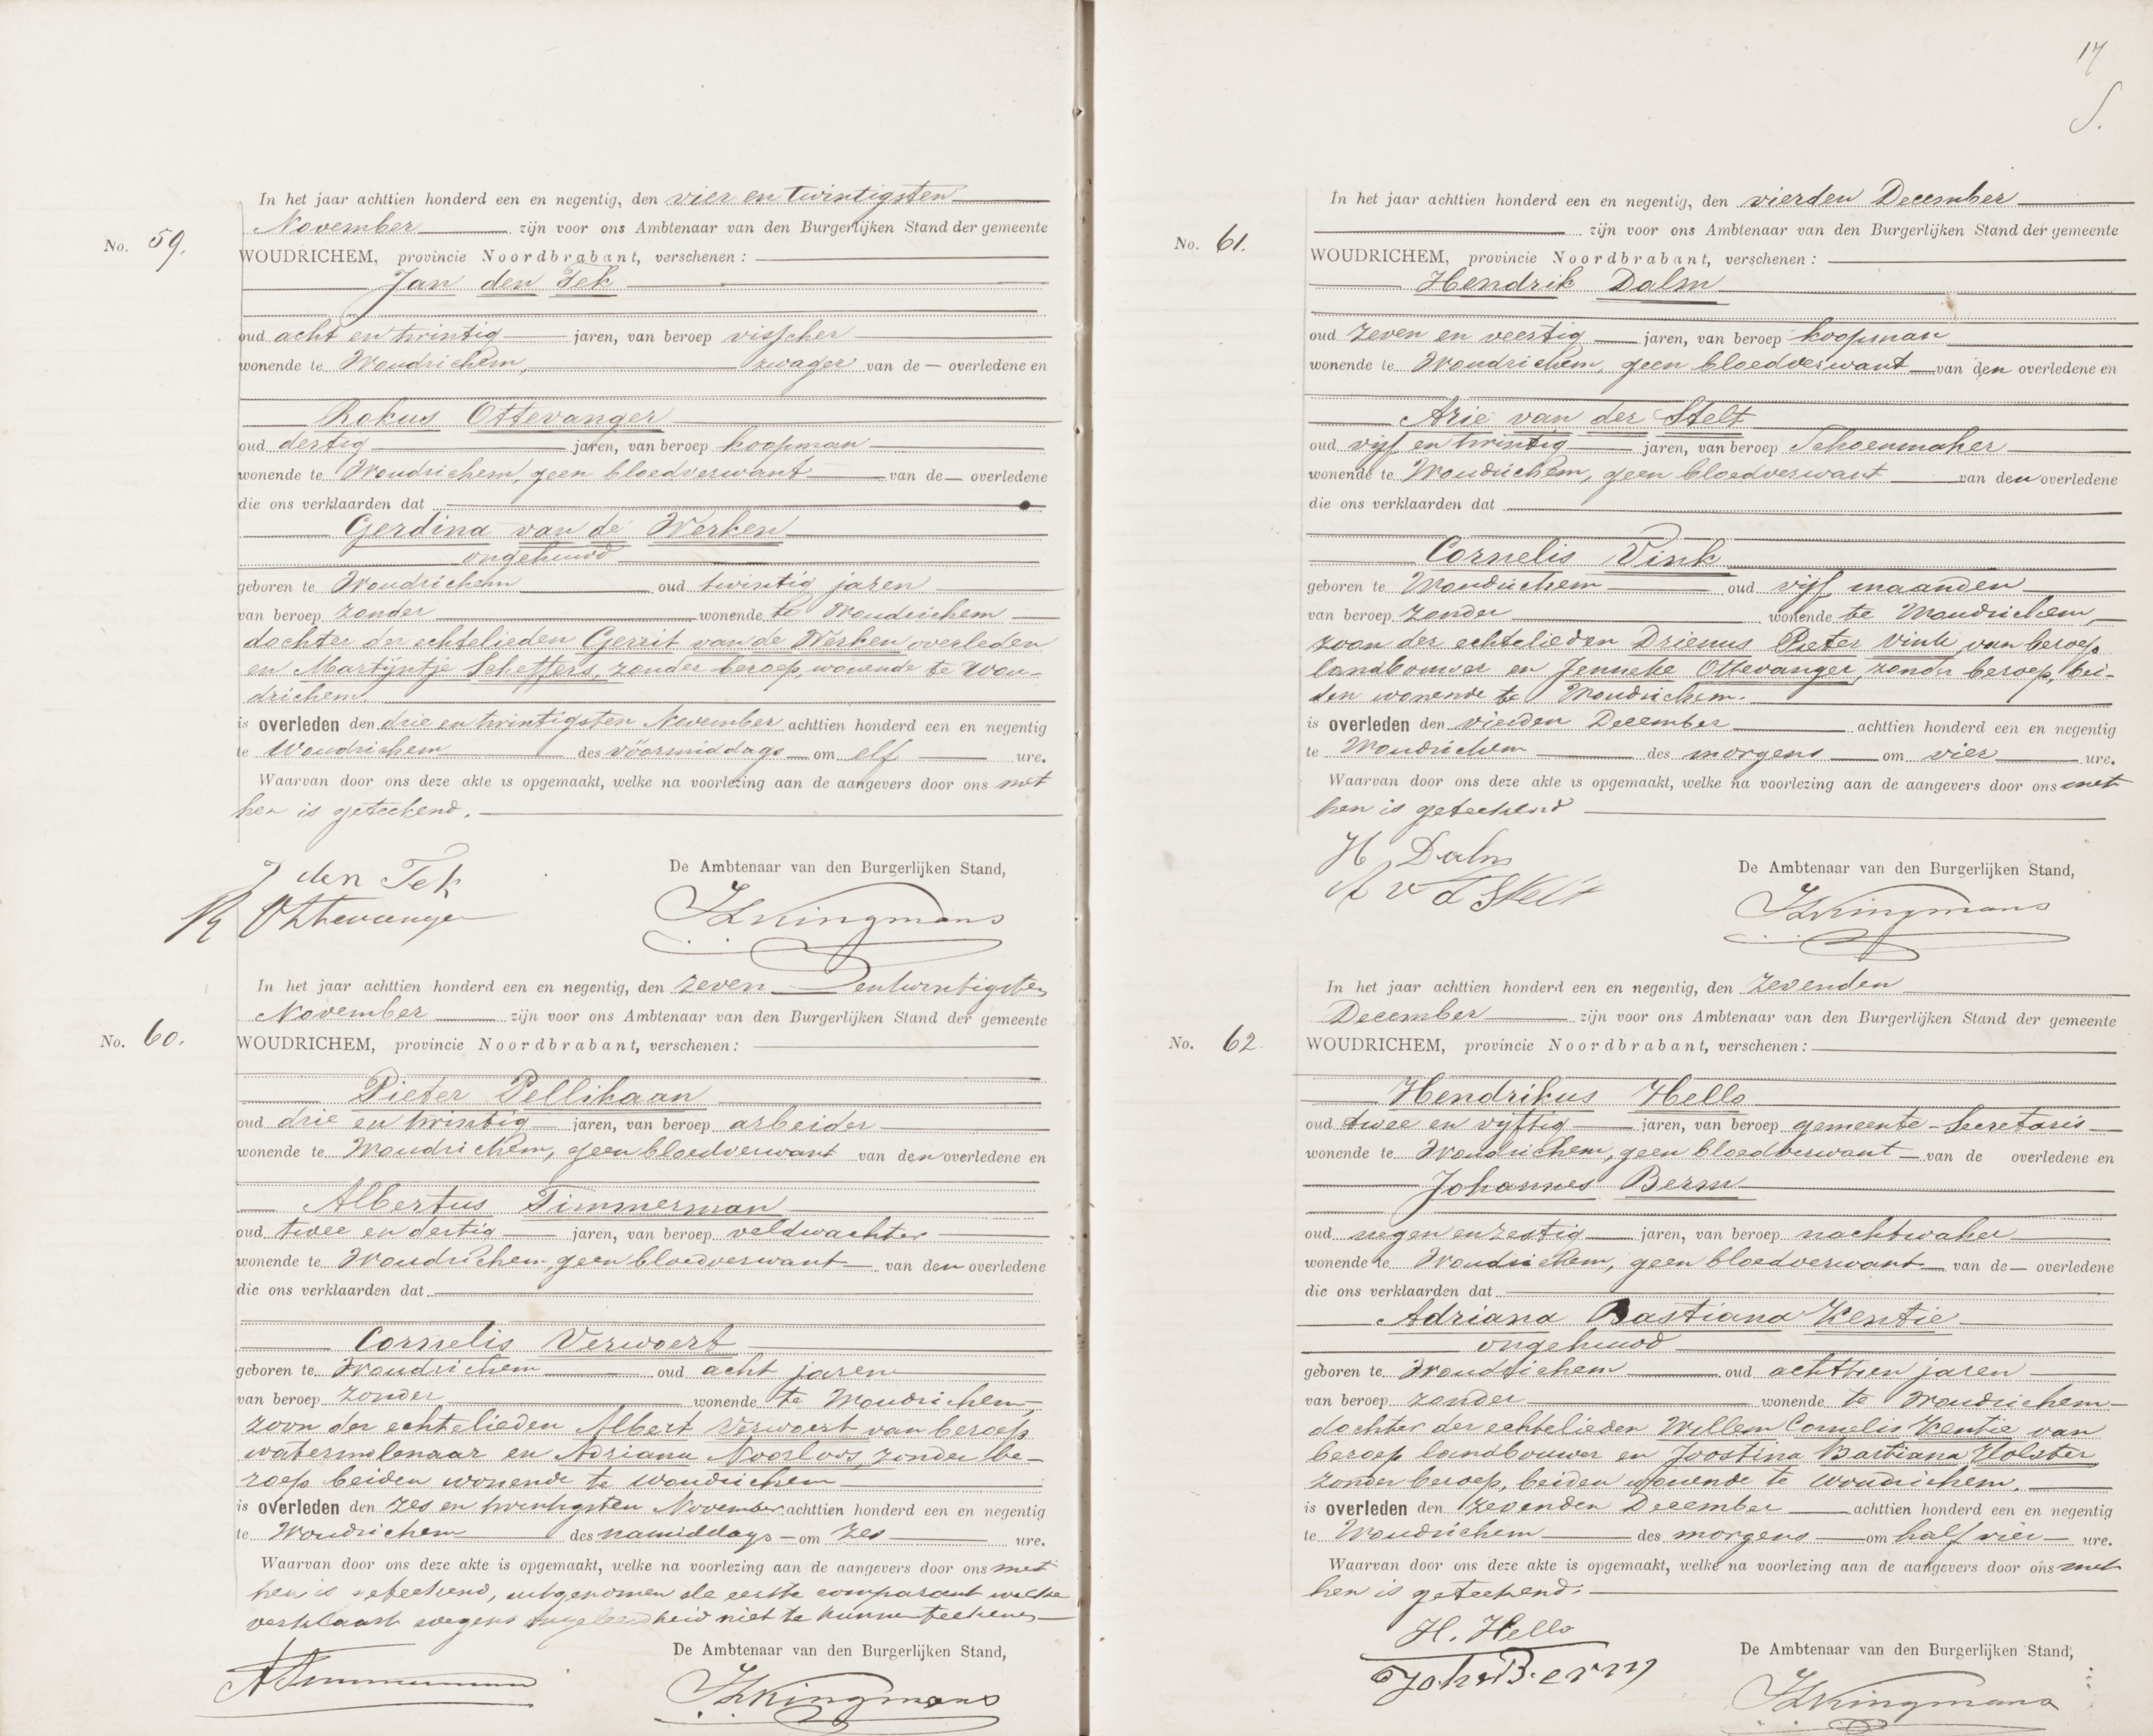 No. 59.
In het jaar achttien honderd een en negentig, den vier en twintigsten
November zijn voor ons Ambtenaar van den Burgerlijken Stand der gemeente
WOUDRICHEM, provincie Noordbrabant, verschenen:
Jan den Tek
oud acht en twintig jaren, van beroep visscher
wonende te Woudrichem, zwager van de overledene en
Rokus Ottevanger
oud dertig jaren, van beroep koopman
wonende te Woudrichem, geen bloedverwant van de overledene
die ons verklaarden dat
Gerdina van de Werken
ongehuwd
geboren te Woudrichem oud twintig jaren
van beroep zonder wonende te Woudrichem
dochter der echtelieden Gerrit van de Werken overleden
en Martijntje Scheffers, zonder beroep, wonende te Wou-
drichem.
is overleden den drie en twintigsten November achttien honderd een en negentig
te Woudrichem des vóórmiddags om elf ure.
Waarvan door ons deze akte is opgemaakt, welke na voorlezing aan de aangevers door ons met
hen is geteekend.
J den Tek
R Ottevanger
De Ambtenaar van den Burgerlijken Stand,
Kingmans
No. 60.
In het jaar achttien honderd een en negentig, den zeven entwintigsten
November zijn voor ons Ambtenaar van den Burgerlijken Stand der gemeente
WOUDRICHEM, provincie Noordbrabant, verschenen:
Pieter Pellikaan
oud drie en twintig jaren, van beroep arbeider
wonende te Woudrichem, geen bloedverwant van den overledene en
Albertus Timmerman
oud twee en dertig jaren, van beroep veldwachter
wonende te Woudrichem, geen bloedverwant van den overledene
die ons verklaarden dat
Cornelis Verwoert
geboren te Woudrichem oud acht jaren
van beroep zonder wonende te Woudrichem,
zoon der echtelieden Albert Verwoert van beroep
watermolenaar en Adriana Noorloos, zonder be-
roep beiden wonende te Woudrichem
is overleden den zes en twintigsten November achttien honderd een en negentig
te Woudrichem des namiddags om zes ure.
Waarvan door ons deze akte is opgemaakt, welke na voorlezing aan de aangevers door ons met
hen is geteekend, uitgenomen de eerste comparant welke
verklaart wegens ongeleerdheid niet te kunnen teekenen
A Timmerman
De Ambtenaar van den Burgerlijken Stand,
Kingmans
17
No. 61.
In het jaar achttien honderd een en negentig, den vierden December
zijn voor ons Ambtenaar van den Burgerlijken Stand der gemeente
WOUDRICHEM, provincie Noordbrabant, verschenen:
Hendrik Dalm
oud zeven en veertig jaren, van beroep koopman
wonende te Woudrichem, geen bloedverwant van den overledene en
Arie van der Stelt
oud vijf en twintig jaren, van beroep Schoenmaker
wonende te Woudrichem, geen bloedverwant van den overledene
die ons verklaarden dat
Cornelis Vink
geboren te Woudrichem oud vijf maanden
van beroep zonder wonende te Woudrichem,
zoon der echtelieden Drienus Pieter Vink van beroep
landbouwer en Jenneke Ottevanger, zonder beroep, bei-
den wonende te Woudrichem.
is overleden den vierden December achttien honderd een en negentig
te Woudrichem des morgens om vier ure.
Waarvan door ons deze akte is opgemaakt, welke na voorlezing aan de aangevers door ons met
hen is geteekend
H Dalm
A v d Stelt
De Ambtenaar van den Burgerlijken Stand,
Kingmans
No. 62.
In het jaar achttien honderd een en negentig, den zevenden
December zijn voor ons Ambtenaar van den Burgerlijken Stand der gemeente
WOUDRICHEM, provincie Noordbrabant, verschenen:
Hendrikus Hello
oud twee en vijftig jaren, van beroep gemeente-Secretaris
wonende te Woudrichem, geen bloedverwant van de overledene en
Johannes Berm
oud negen en zestig jaren, van beroep nachtwaker
wonende te Woudrichem, geen bloedverwant van de overledene
die ons verklaarden dat
Adriana Bastiana Kentie
ongehuwd
geboren te Woudrichem oud achttien jaren
van beroep zonder wonende te Woudrichem
dochter der echtelieden Willem Cornelis Kentie van
beroep landbouwer en Joostina Bastiana Holster
zonder beroep, beiden wonende te Woudrichem.
is overleden den zevenden December achttien honderd een en negentig
te Woudrichem des morgens om half vier ure.
Waarvan door ons deze akte is opgemaakt, welke na voorlezing aan de aangevers door ons met
hen is geteekend.
H. Hello
Joh. Berm
De Ambtenaar van den Burgerlijken Stand,
Kingmans